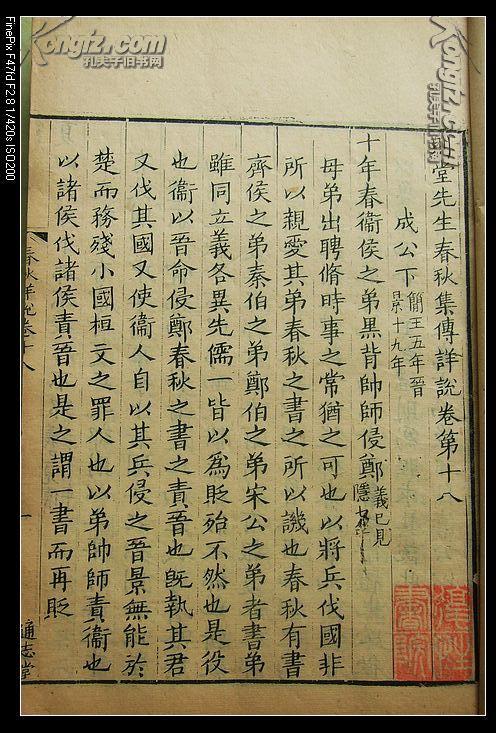 堂先生春秋集傳詳說卷第十八
成公下 簡王五年晉
景十九年
十年春衞侯之弟黑背帥師侵鄭 義已見
隱
母弟出聘脩時事之常猶之可也以將兵伐國非
所以親愛其弟春秋之書之所以譏也春秋有書
齊侯之弟秦伯之弟鄭伯之弟宋公之弟者書弟
雖同立義各異先儒一皆以為貶殆不然也是役
也衞以晉命侵鄭春秋之書之責晉也旣執其君
又伐其國又使衞人自以其兵侵之晉景無能於
楚而務殘小國桓文之罪人也以弟帥師責衞也
以諸侯伐諸侯責晉也是之謂一書而再貶
春秋詳說卷十八
一
通志堂
FinePix F47fd F2.8 1/420s ISO200
Kongfz.com
孔夫子旧书网